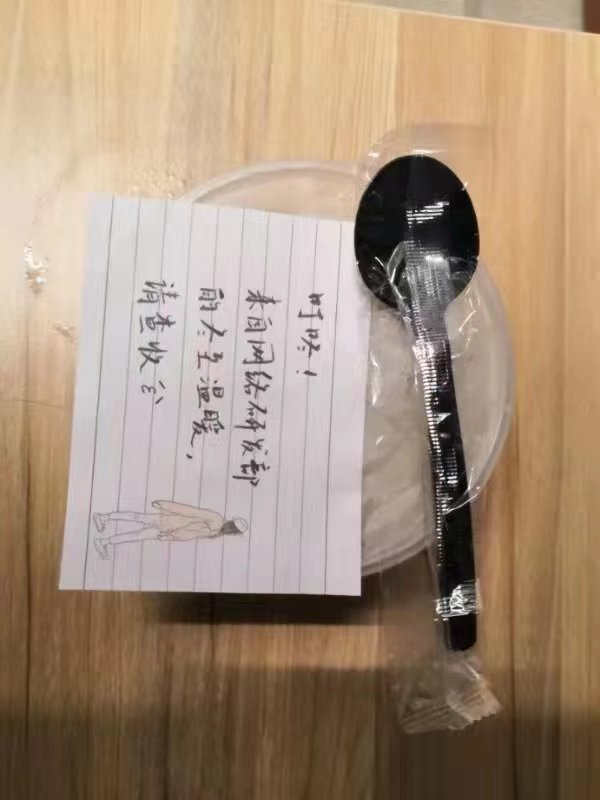 叮咚！
来自网络研发部
的冬至温暖，
请查收